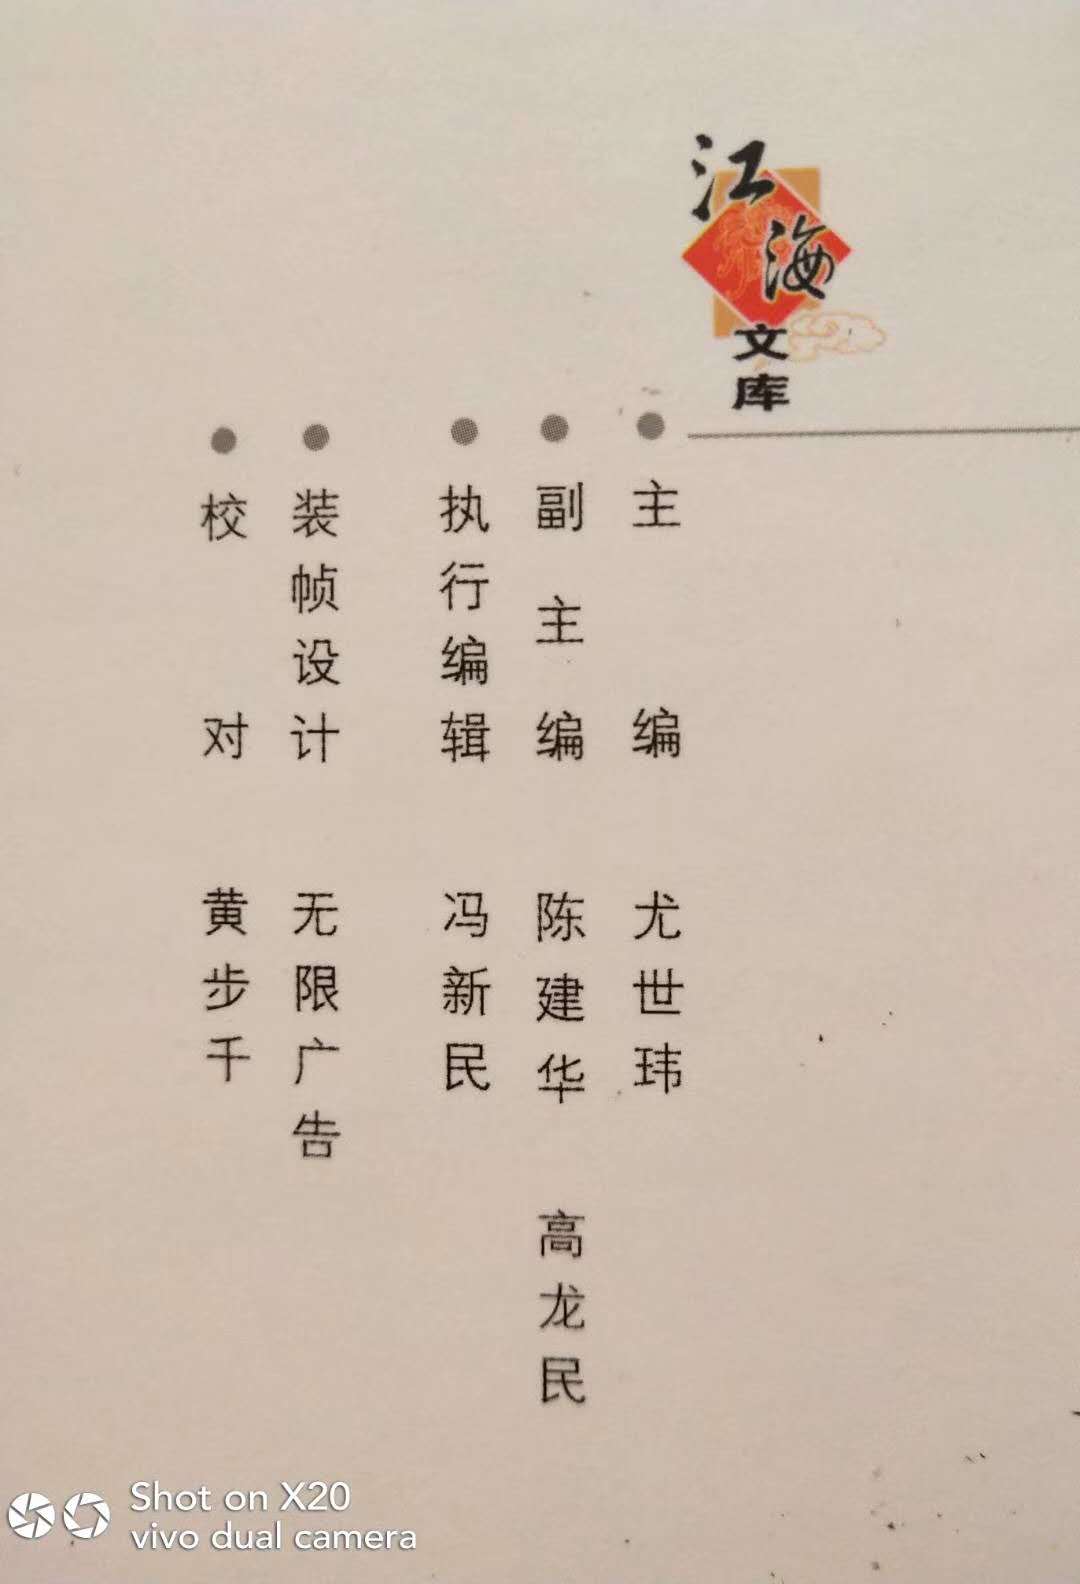 江海
文库
主编 尤世玮
副主编 陈建华 高龙民
执行编辑 冯新民
装帧设计 无限广告
校对 黄步千
Shot on X20
vivo dual camera